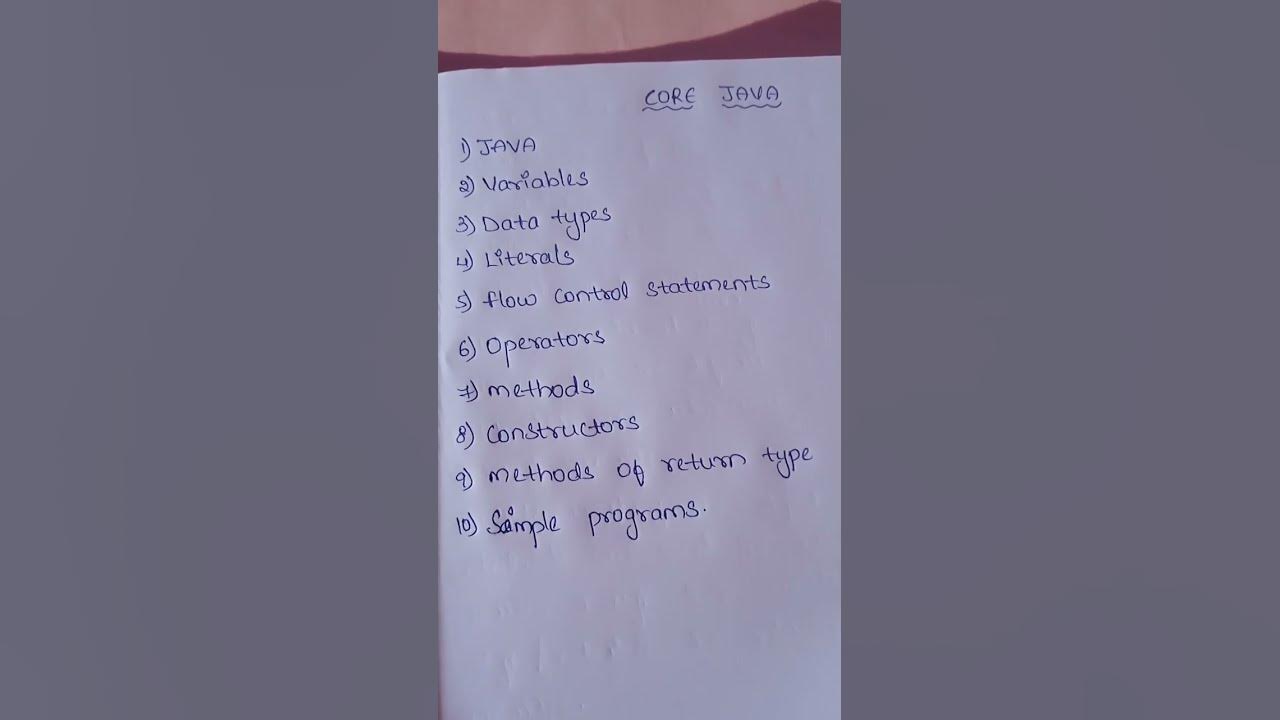 CORE JAVA
1) JAVA
2) Variables
3) Data types
4) Literals
5) flow control statements
6) Operators
7) methods
8) constructors
9) methods of return type
10) Simple programs.